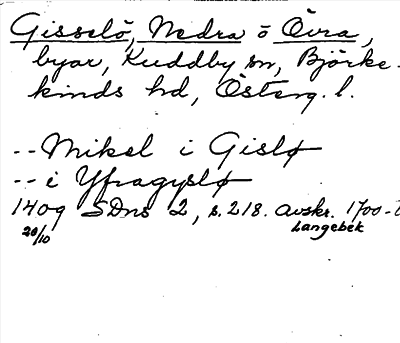 Gisselö, Nedra o Övra,
byar, Kuddby sn, Björke-
kinds hd, Österg. l.
-- Mikel i Gislø
-- i Yfragyslø
1409 SDns 2, s. 218. Avskr. 1700-t
20/10 Langebek